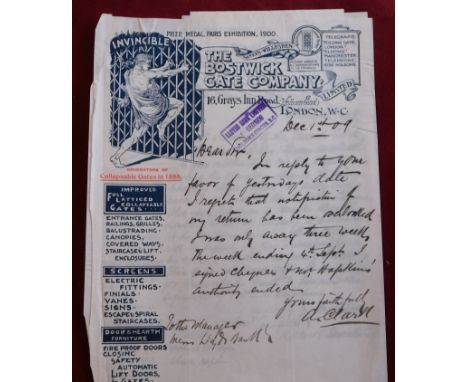 PRIZE MEDAL, PARIS EXHIBITION, 1900.
INVINCIBLE
THE
BOSTWICK
GATE COMPANY,
LIMITED
TELEGRAMS
FOLDING GATE,
LONDON.
MANCHESTER.
TELEPHONE
16, Grays Inn Road,
LONDON, W.C.
ORIGINATORS OF
Collapsable Gates in 1888.
Dec 1st 09
Dear Sir,
In reply to your
favor of yesterdays date
I regret that notification of
my return has been overlooked
I was only away three weeks
the week ending 4th Sept. I
signed cheques & Mr Hopkins'
authority ended.
Yours faithfully
A. Clark
To the Manager
Messrs Lloyds Bank Ld
IMPROVED
FULL
LATTICED
COLLAPSABLE
GATES.
ENTRANCE GATES,
RAILINGS, GRILLES,
BALUSTRADING.
CANOPIES,
COVERED WAYS.
STAIRCASE & LIFT
ENCLOSURES.
SCREENS
ELECTRIC
FITTINGS-
FINIALS-
VANES-
SIGNS-
ESCAPE & SPIRAL
STAIRCASES.
DOOR & HEARTH
FURNITURE
FIRE PROOF DOORS
CLOSING
SAFETY
AUTOMATIC
LIFT DOORS,
& GATES-